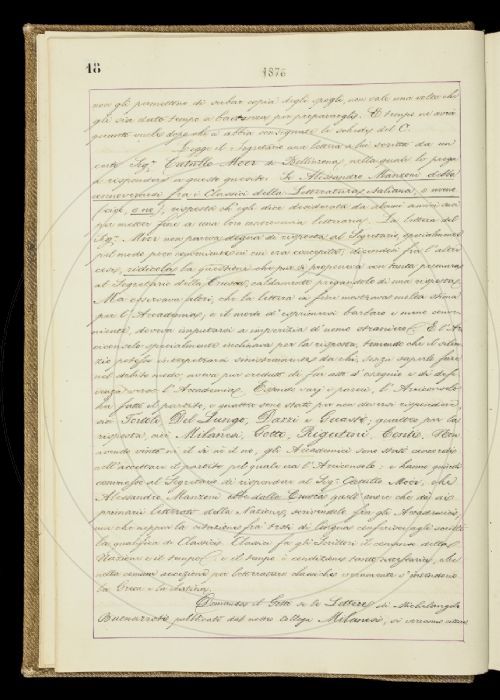 18
1876
non gli permettono di serbar copia degli spogli, non vale una volta che
gli sia dato tempo a bastanza per prepararglisi. E tempo ne avrà
quanto vuole dopo che ci abbia consegnato le schede del C.
Legge il Segretario una lettera a lui scritta da un
certo Sig.r Catullo Moer di Bellinzona, nella quale lo prega
a rispondere a questo quesito: Se Alessandro Manzoni debba
annoverarsi fra i Classici della Letteratura italiana, o meno
(cioè, o no), risposta ch'egli dice desiderata da alcuni amici suoi
per metter fine a una loro controversia letteraria. La lettera del
Sig.r Moer non pareva degna di risposta al Segretario, specialmente
pel modo poco conveniente in cui era concepita, dicendosi fra l'altre
cose, ridicola la quistione che pur si proponeva con tanta premura
al Segretario della Crusca, caldamente pregandolo di una risposta.
Ma osservava altri, che la lettera in fine mostrava molta stima
per l'Accademia, e il modo d'esprimersi barbaro e meno conve-
niente, doveva imputarsi a imperizia d'uomo straniero. E l'Ar-
ciconsolo specialmente inclinava per la risposta, temendo che il silen-
zio potesse interpetrarsi sinistramente da chi, senza saperlo fare
nel debito modo, aveva pur creduto di far atto d'ossequio e di defe-
renza verso l'Accademia. Essendo varj i pareri, l'Arciconsolo
ha fatto il partito, e quattro sono stati per non doversi rispondere,
cioè Tortoli, Del Lungo, Dazzi e Guasti; quattro per la
risposta, cioè Milanesi, Cotta, Rigutini, Conti. Non
avendo vinto nè il sì nè il no, gli Accademici sono stati concordi
nell'accettare il partito pel quale era l'Arciconsolo: e hanno quindi
commesso al Segretario di rispondere al Sig.r Catullo Moer, che
Alessandro Manzoni è dalla Crusca quell'onore che dà ai
primarii letterati della Nazione, scrivendolo fra gli Accademici;
ma che neppur la citazione fra i testi di lingua conferisce agli scrittori
la qualifica di Classici. Classici fa gli Scrittori il consenso della
Nazione e il tempo: e il tempo è condizione tanto necessaria, che
nella comune accezione per letterature classiche veramente s'intendono
la Greca e la latina.
Domanda il Cotta se le Lettere di Michelangelo
Buonarroti, pubblicate dal nostro collega Milanesi, si verranno citare